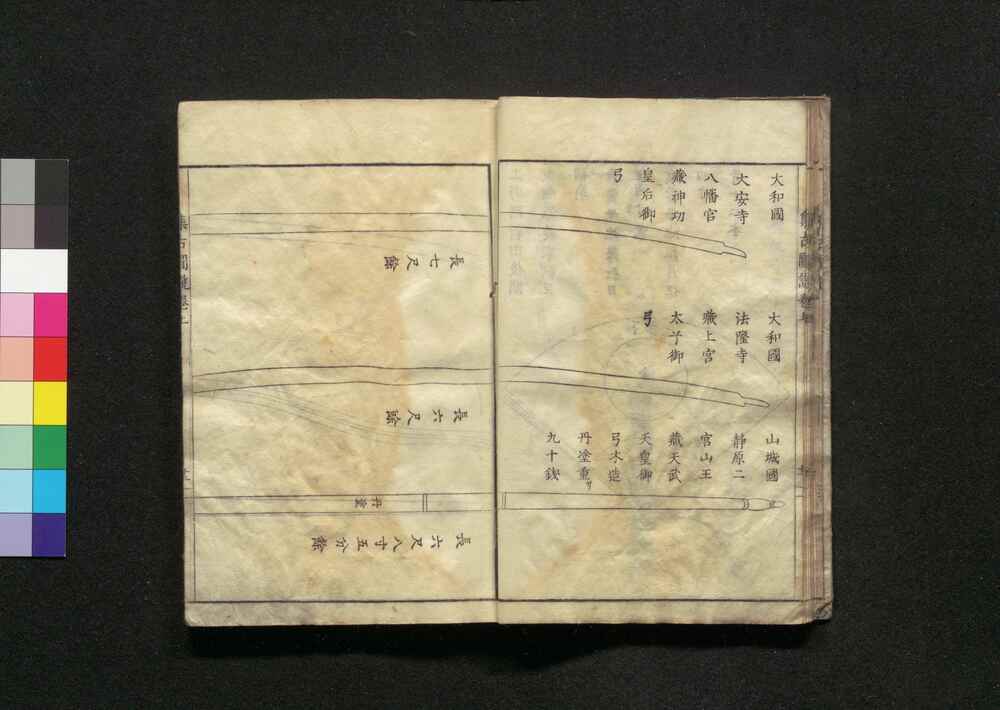 大和國
大安寺
八幡宮
藏神功
皇后御
弓
大和國
法隆寺
藏上宮
太子御
弓
山城國
靜原二
宮山王
藏天武
天皇御
弓木造
丹塗重サ
九十錢
長七尺餘
長六尺餘
丹塗
長六尺八寸五分餘